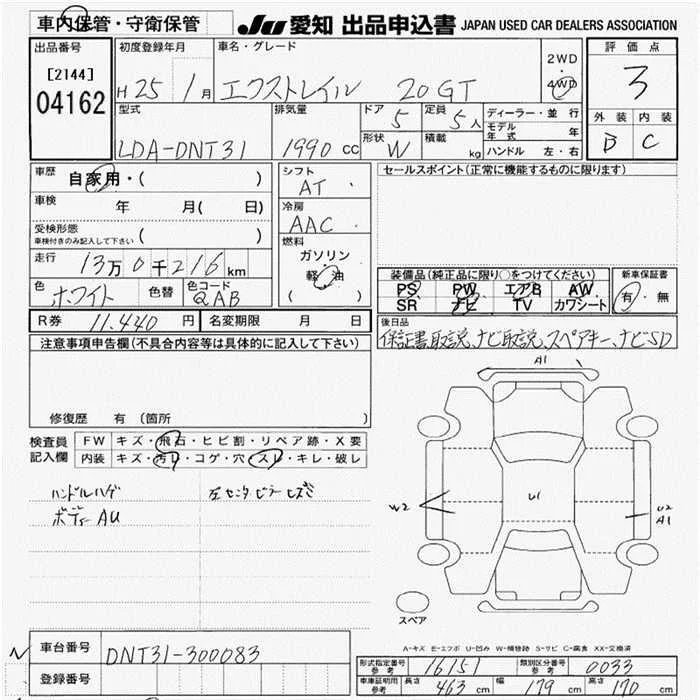 車内保管・守衛保管
JU 愛知 出品申込書 JAPAN USED CAR DEALERS ASSOCIATION
出品番号 初度登録年月 車名・グレード 評価点
[2144] 04162 H 25 1月 エクストレイル 20GT 2WD・4WD 3
型式 排気量 ドア 定員 ディーラー・並行 外装 内装
LDA-DNT31 1990 cc 5 5人 モデル年式 年 B C
形状 W 積載 kg ハンドル 左・右
車歴 自家用・( ) シフト AT セールスポイント(正常に機能するものに限ります)
車検 年 月( 日) 冷房 AAC
受検形態 車検付きのみ記入して下さい ( ) 燃料 ガソリン 軽油 ( )
走行 13万0千216km 装備品(純正品に限り○をつけてください) 新車保証書
色 ホワイト 色替 色コード QAB PS PW エアB AW 有・無
SR ナビ TV カワシート
R券 11.440 円 名変期限 月 日 後日品
保証書、取説、ナビ取説、スペアキー、ナビSD
注意事項申告欄(不具合内容等は具体的に記入して下さい)
修復歴 有 (箇所 )
検査員記入欄 FW キズ・飛石・ヒビ割・リペア跡・X要
内装 キズ・汚れ・コゲ・穴・スレ・キレ・破レ
ハンドルハゲ 左センターピラーキズ
ボデーAU
A1
W2 U1 U2
A1
スペア
A-キズ E-エクボ U-凹み W-補修跡 S-サビ C-腐食 XX-交換済
車台番号 DNT31-300083
登録番号
形式指定番号 参考 16151 類別区分番号 参考 0033
車庫証明用 参考 長さ 463 cm 幅 179 cm 高さ 170 cm